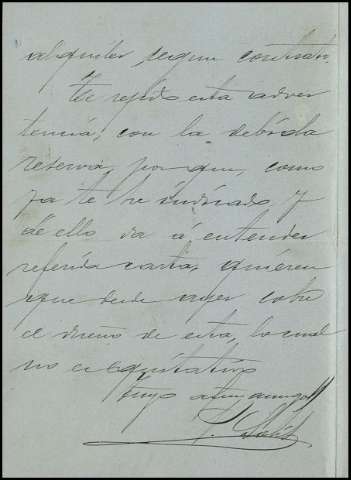 alquiler segun contrato
Te repito esta adver
tencia, con la debida
reserva, por que, como
ya te he indicado y
de ello da á entender
referida carta, quieren
que desde ayer cobre
el dueño de esta, lo cual
no es equitativo
Tuyo affmo amigo